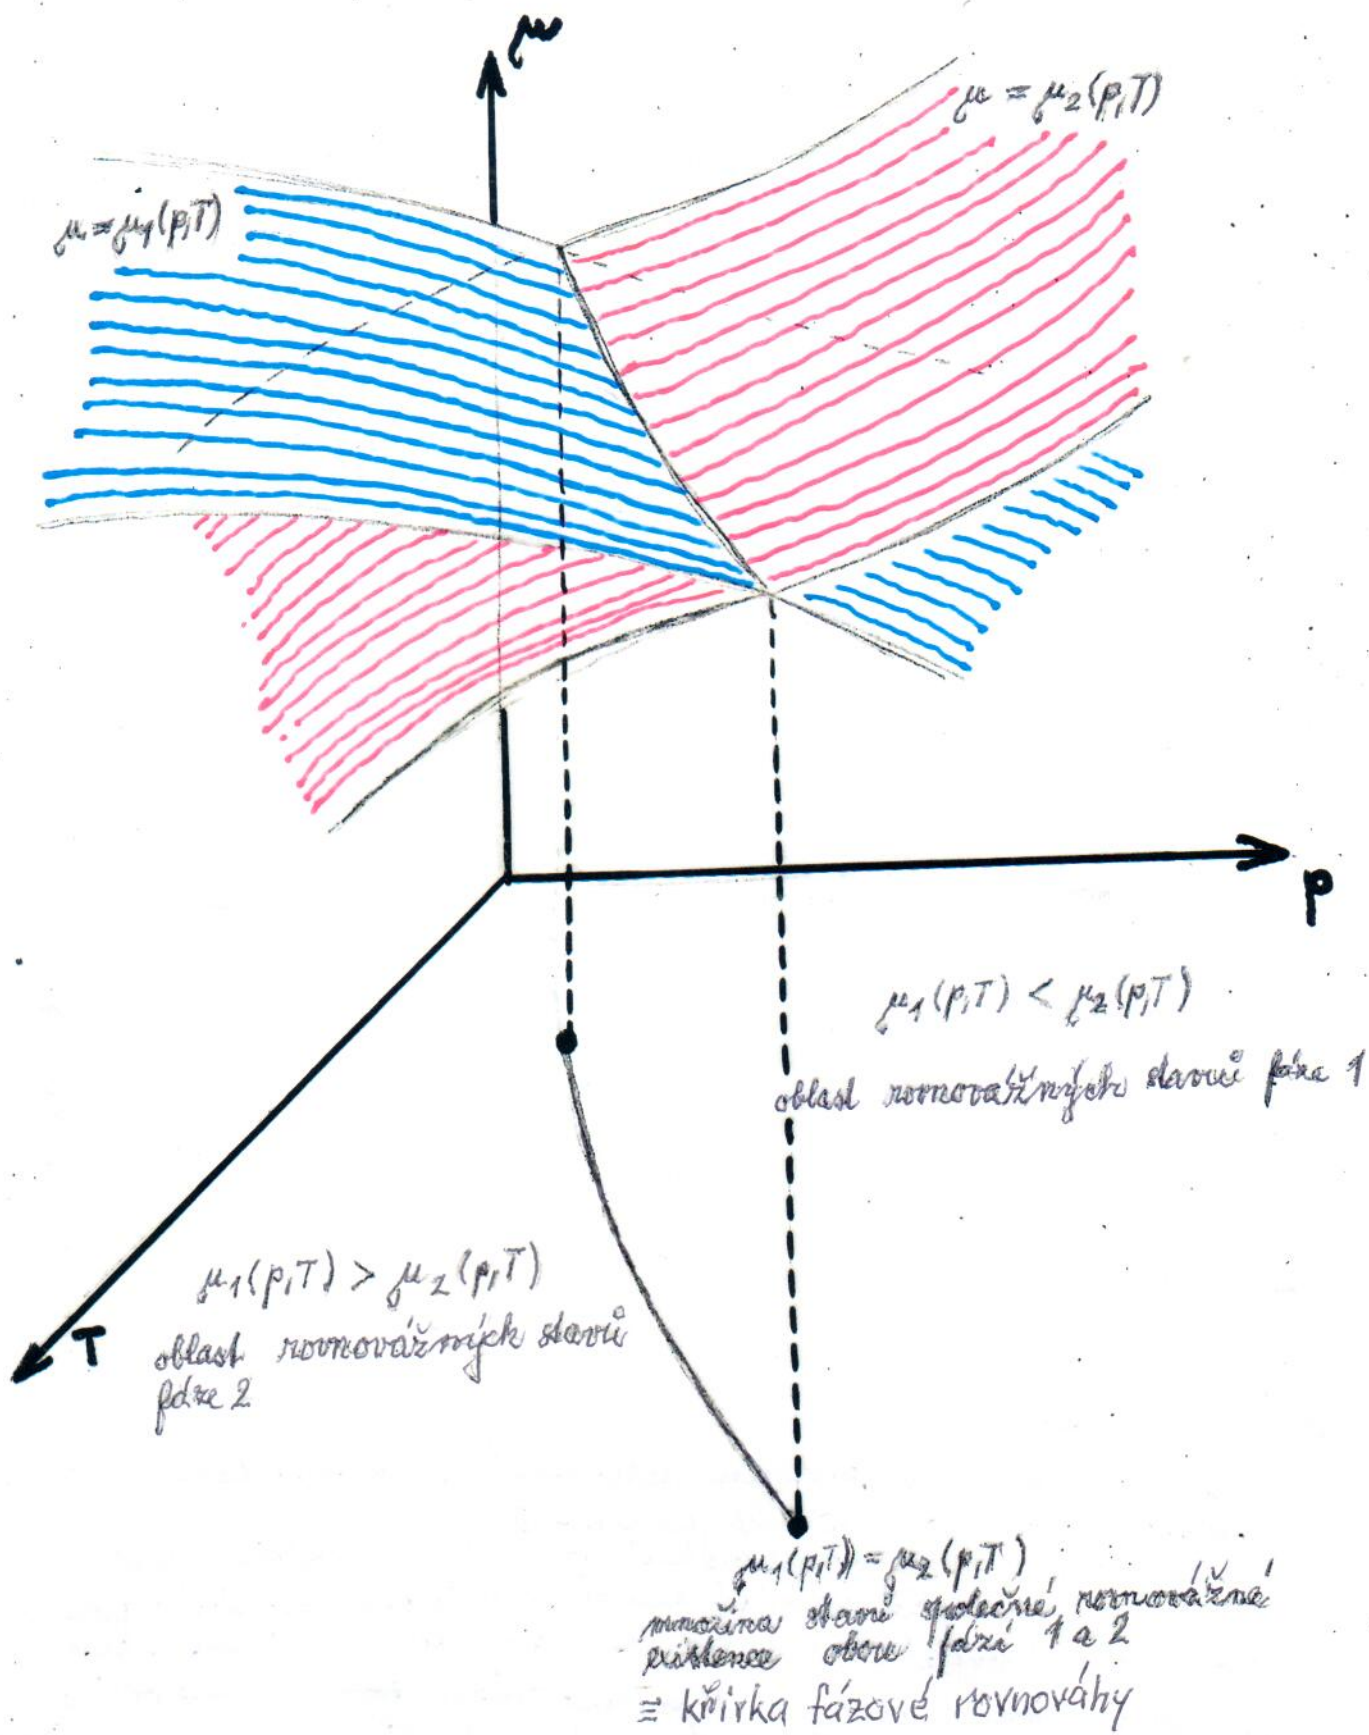 μ
μ = μ₂(p,T)
μ = μ₁(p,T)
p
μ₁(p,T) < μ₂(p,T)
oblast rovnovážných stavů fáze 1
μ₁(p,T) > μ₂(p,T)
oblast rovnovážných stavů
fáze 2
T
μ₁(p,T) = μ₂(p,T)
množina stavů společné rovnovážné
existence obou fází 1 a 2
≡ křivka fázové rovnováhy